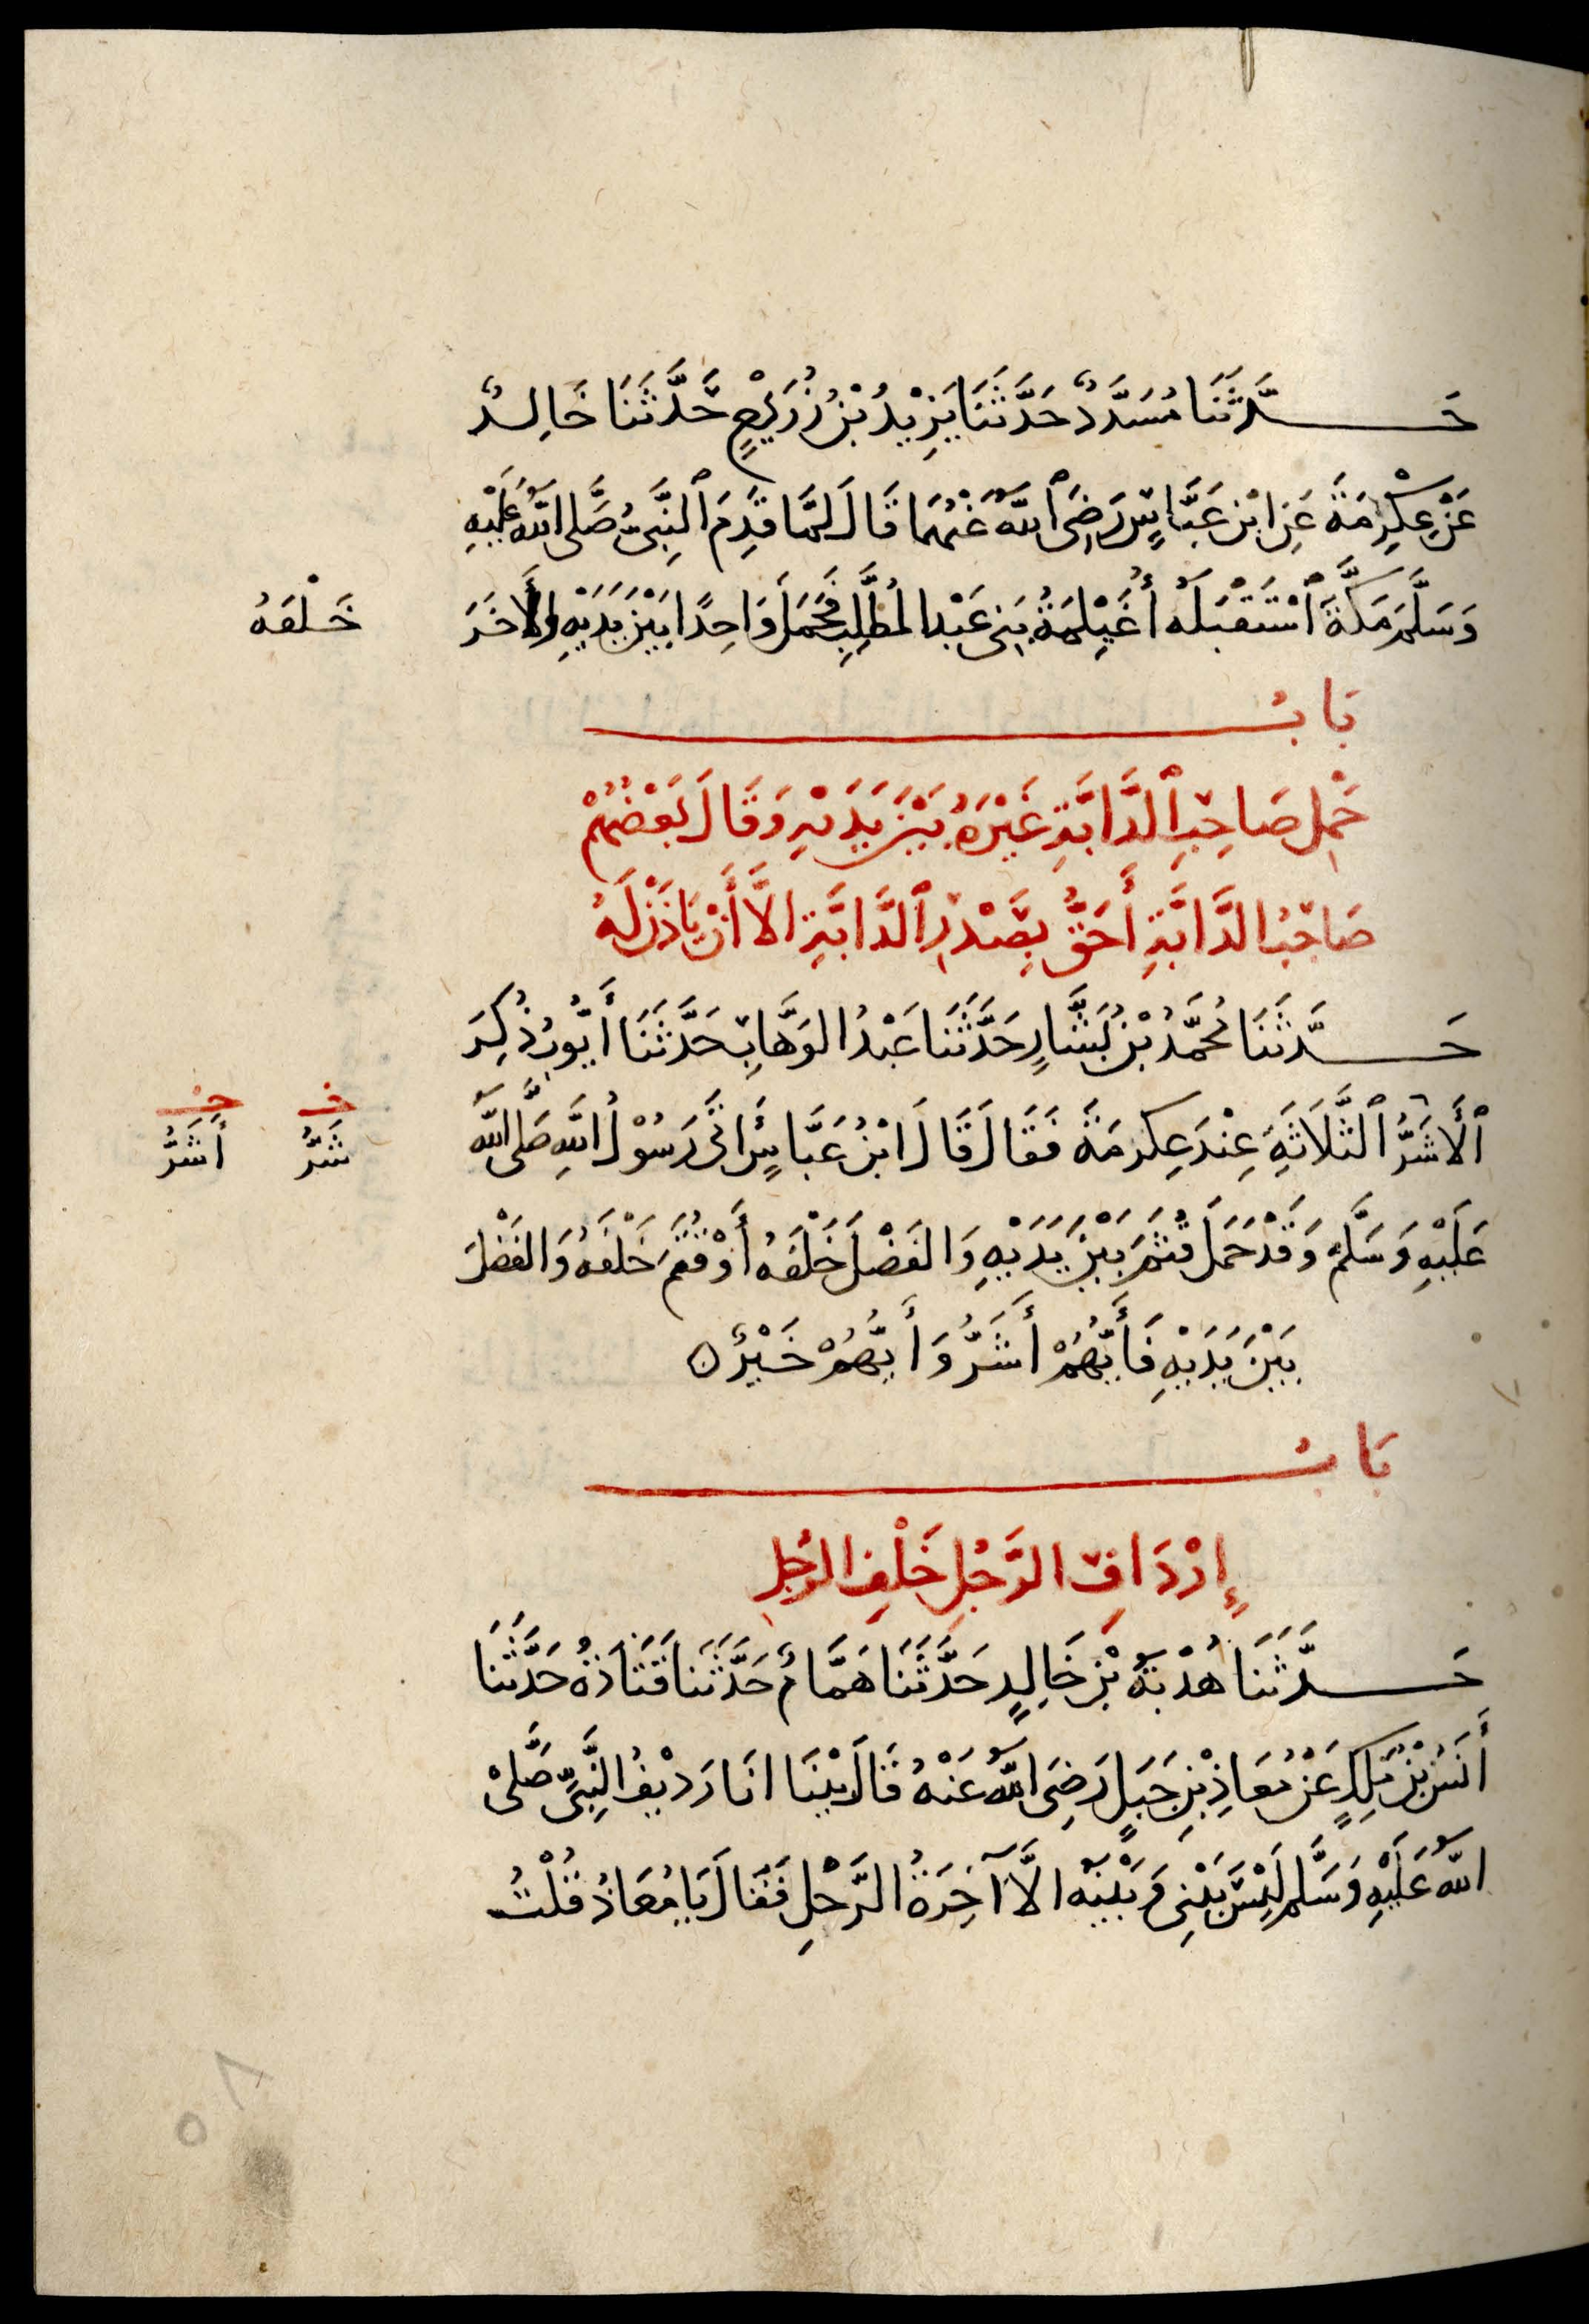 حَدَّثَنَا مُسَدَّدٌ حَدَّثَنَا يَزِيْدُ بْنُ زُرَيْعٍ حَدَّثَنَا خَالِدٌ
عَنْ عِكْرِمَةَ عَنِ ابْنِ عَبَّاسٍ رَضِيَ ٱللهُ عَنْهُمَا قَالَ لَمَّا قَدِمَ ٱلنَّبِيُّ صَلَّى اللهُ عَلَيْهِ
وَسَلَّمَ مَكَّةَ ٱسْتَقْبَلَهُ أُغَيْلِمَةُ بَنِي عَبْدِ الْمُطَّلِبِ فَحَمَلَ وَاحِدًا بَيْنَ يَدَيْهِ وَالْآخَرَ
خَلْفَهُ
بَابُ
حَمْلِ صَاحِبِ ٱلدَّابَّةِ غَيْرَهُ بَيْنَ يَدَيْهِ وَقَالَ بَعْضُهُمْ
صَاحِبُ الدَّابَّةِ أَحَقُّ بِصَدْرِ ٱلدَّابَّةِ الَّا أَنْ يَاذَنَ لَهُ
حَدَّثَنَا مُحَمَّدُ بْنُ بَشَّارٍ حَدَّثَنَا عَبْدُ الوَهَّابِ حَدَّثَنَا أَيُّوبُ ذُكِرَ
ٱلْأَشَرُّ ٱلثَّلَاثَةِ عِنْدَ عِكرِمَةَ فَقَالَ قَالَ ابْنُ عَبَّاسٍ أَتَى رَسُوْلُ اللهِ صَلَّى اللهُ
خـ شَرُّ
حـ أَشَرُّ
عَلَيْهِ وَسَلَّمَ وَقَدْ حَمَلَ قُثَمَ بَيْنَ يَدَيْهِ وَالفَضْلَ خَلْفَهُ أَوْ قُثَمَ خَلْفَهُ وَالفَضْلَ
بَيْنَ يَدَيْهِ فَأَيُّهُمْ أَشَرُّ وَأَيُّهُمْ خَيْرٌ ه
بَابُ
إِرْدَافِ الرَّجُلِ خَلْفِ الرَّجُلِ
حَدَّثَنَا هُدْبَةُ بْنُ خَالِدٍ حَدَّثَنَا هَمَّامٌ حَدَّثَنَا قَتَادَةُ حَدَّثَنَا
أَنَسُ بْنُ مَلِكٍ عَنْ مُعَاذِ بْنِ جَبَلٍ رَضِيَ اللهُ عَنْهُ قَالَ بَيْنَا انَا رَدِيْفُ النَّبِيِّ صَلَّى
اللهُ عَلَيْهِ وَسَلَّمَ لَيْسَ بَيْنِي وَبَيْنَهُ الَّا آخِرَةُ الرَّحْلِ فَقَالَ يَا مُعَاذُ قُلْتُ
٨٥